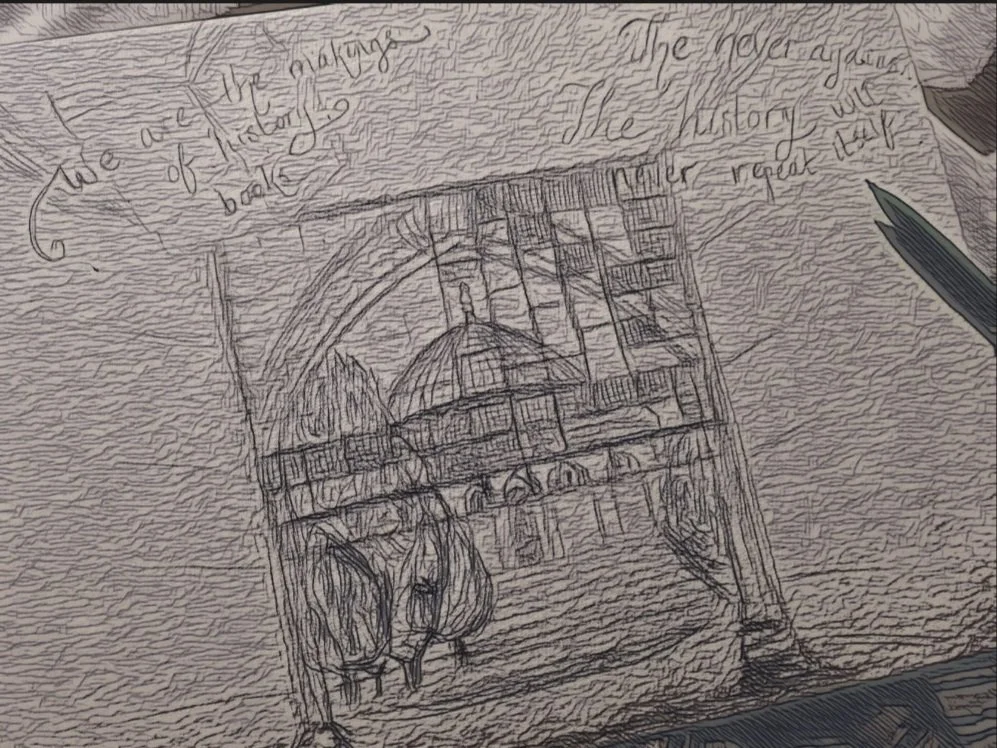 We are the makings
of history
books
The never agains.
The history will
never repeat itself.